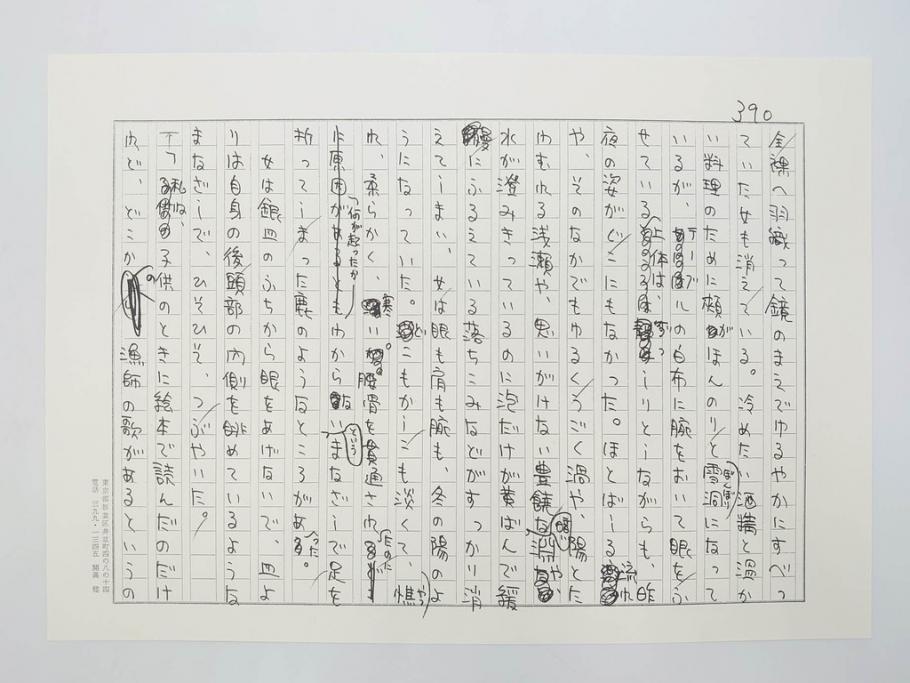 390
全裸へ羽織って鏡のまえでゆるやかにすべっ
ていた女も消えている。冷めたい酒精と温か
い料理のために頰がほんのりと雪洞になって
いるが、テーブルの白布に腕をおいて眼をふ
せている上体は、ずっしりとしながらも、昨
夜の姿がどこにもなかった。ほとばしる流れ
や、そのなかでもゆるくうごく渦や、陽とた
わむれる浅瀬や、思いがけない豊饒な暗い淵や、
水が澄みきっているのに泡だけが黄ばんで緩
慢にふるえている落ちこみなどがすっかり消
えてしまい、女は眼も肩も腕も、冬の陽のよ
うになっていた。どこもかしこも淡くて、憔
れ、柔らかく、寒い。腰骨を貫通されたのに
「何が起ったか
わからない」というまなざしで足を
折ってしまった鹿のようなところがあった。
女は銀皿のふちから眼をあげないで、皿よ
りは自身の後頭部の内側を眺めているような
まなざしで、ひそひそ、つぶやいた。
「私ね、子供のときに絵本で読んだのだけ
れど、どこかの漁師の歌があるというの
ぼんぼり
やつ
東京都杉並区井草町四の八の十四
電話 三九九・一三四五 開高 健